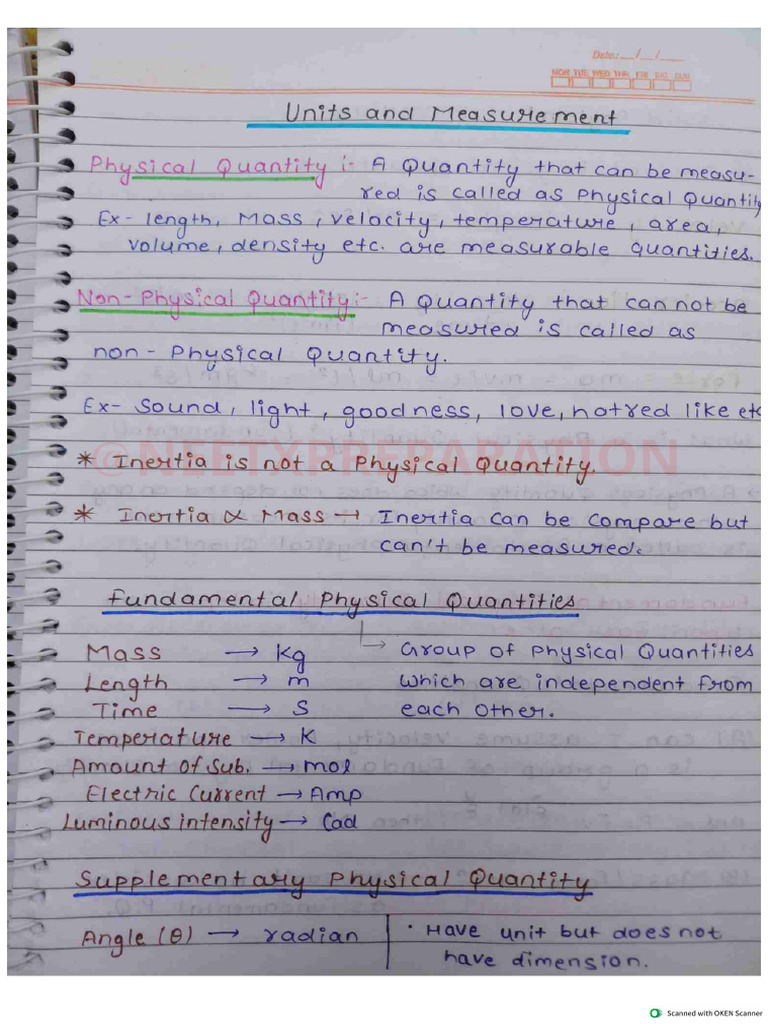 Date:__/__/__
MON TUE WED THR FRI SAT SUN
Units and Measurement
Physical Quantity :- A Quantity that can be measu-
red is called as Physical Quantity
Ex- length, Mass, velocity, temperature, area,
volume, density etc. are measurable quantities.
Non-Physical Quantity:- A Quantity that can not be
measured is called as
non-Physical Quantity.
Ex- Sound, light, goodness, love, hatred like etc
@NEETXPREPARATION
* Inertia is not a Physical Quantity.
* Inertia ∝ Mass → Inertia can be compare but
can't be measured.
Fundamental Physical Quantities
Mass → Kg
Group of Physical Quantities
Length → m
which are independent from
Time → S
each other.
Temperature → K
Amount of Sub. → mol
Electric Current → Amp
Luminous intensity → Cad
Supplementary Physical Quantity
Angle (θ) → radian
• Have unit but does not
have dimension.
Scanned with OKEN Scanner